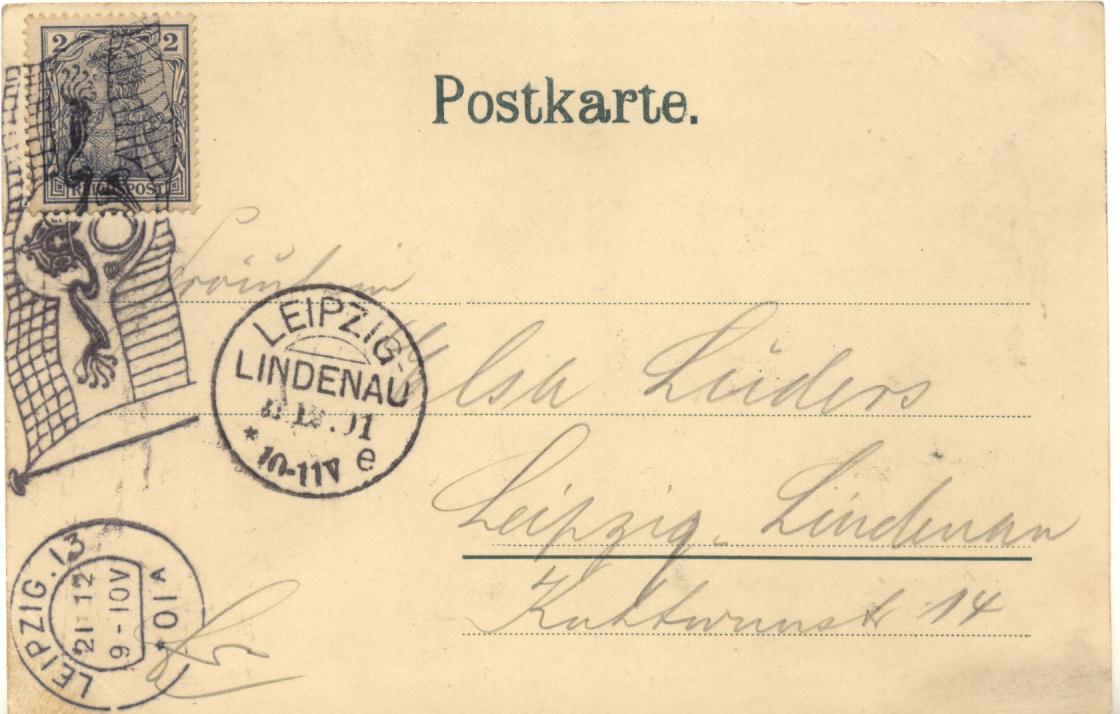 2 2
REICHSPOST
Postkarte.
Fräulein
Elsa Lüders
Leipzig-Lindenau
14
LEIPZIG-
LINDENAU
.01
* 10-11V e
LEIPZIG.13
21 12
9-10V
*01A